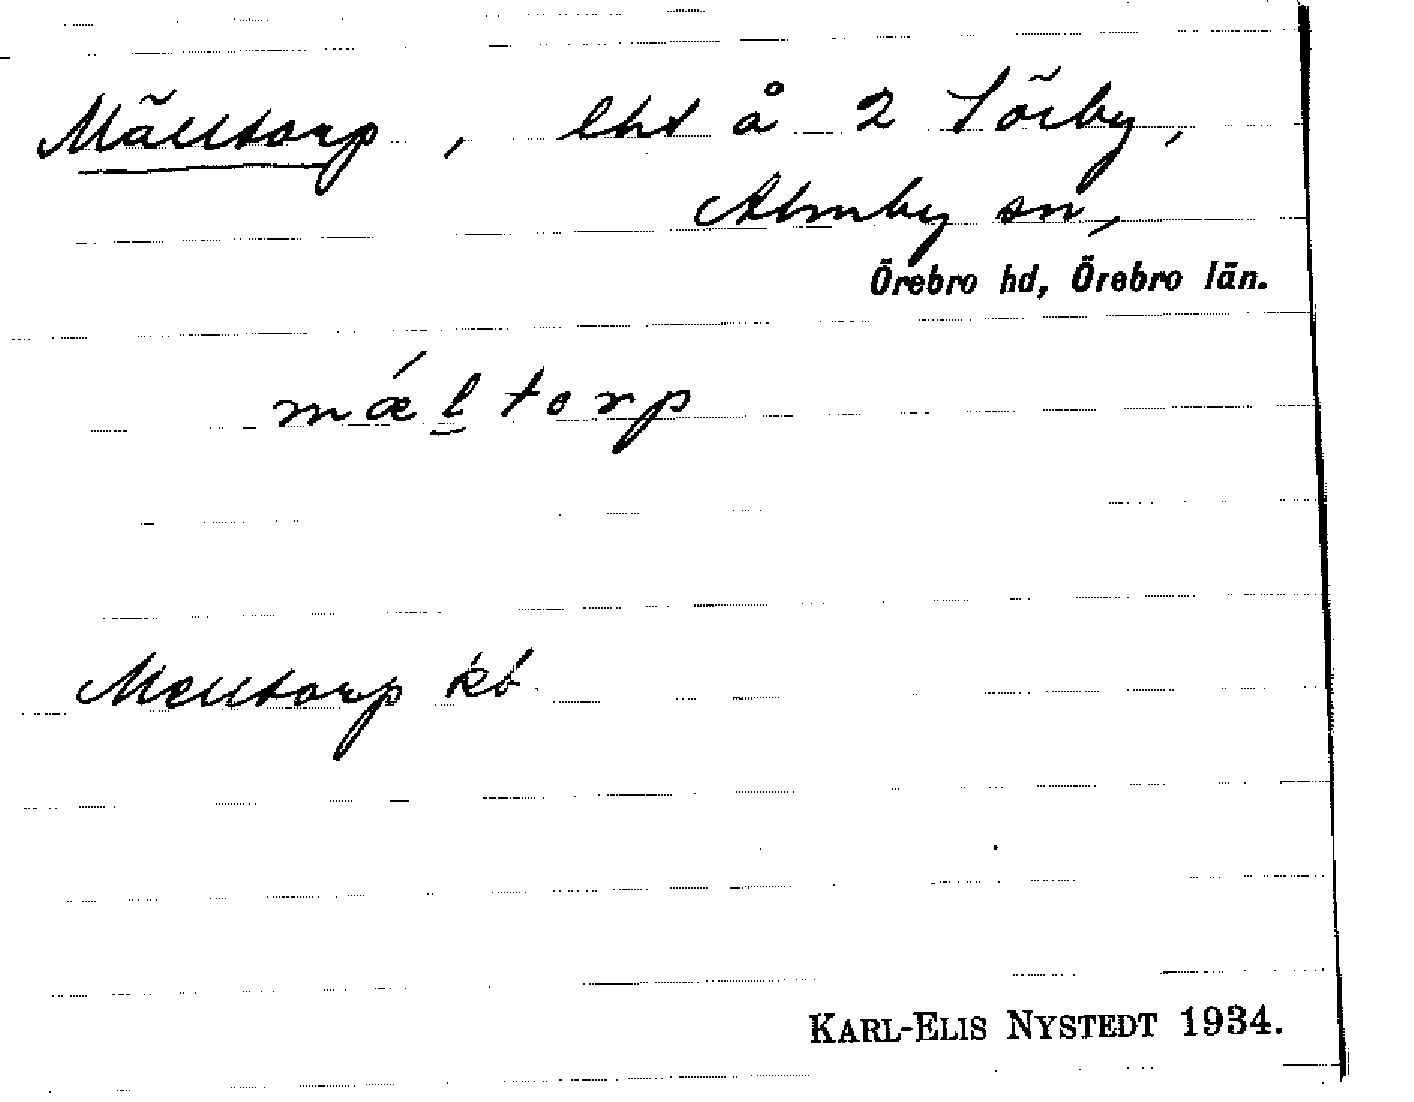 Mälltorp, lht å 2 Sörby,
Almby sn,
Örebro hd, Örebro län.
mǽl̠torp
Melltorp kb
KARL-ELIS NYSTEDT 1934.